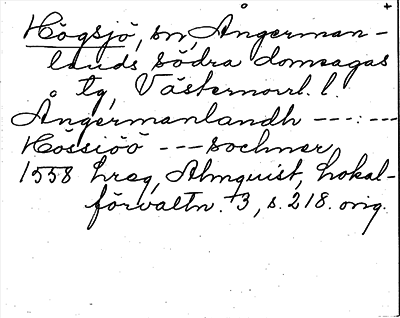 Högsjö, sn, Ångerman-
lands södra domsagas
tg, Västernorrl. l.
Ångermanlandh ---:---
Hössiöö --- sochner
1558 hreg, Almquist, Lokal-
förvaltn. 3, s. 218. orig.